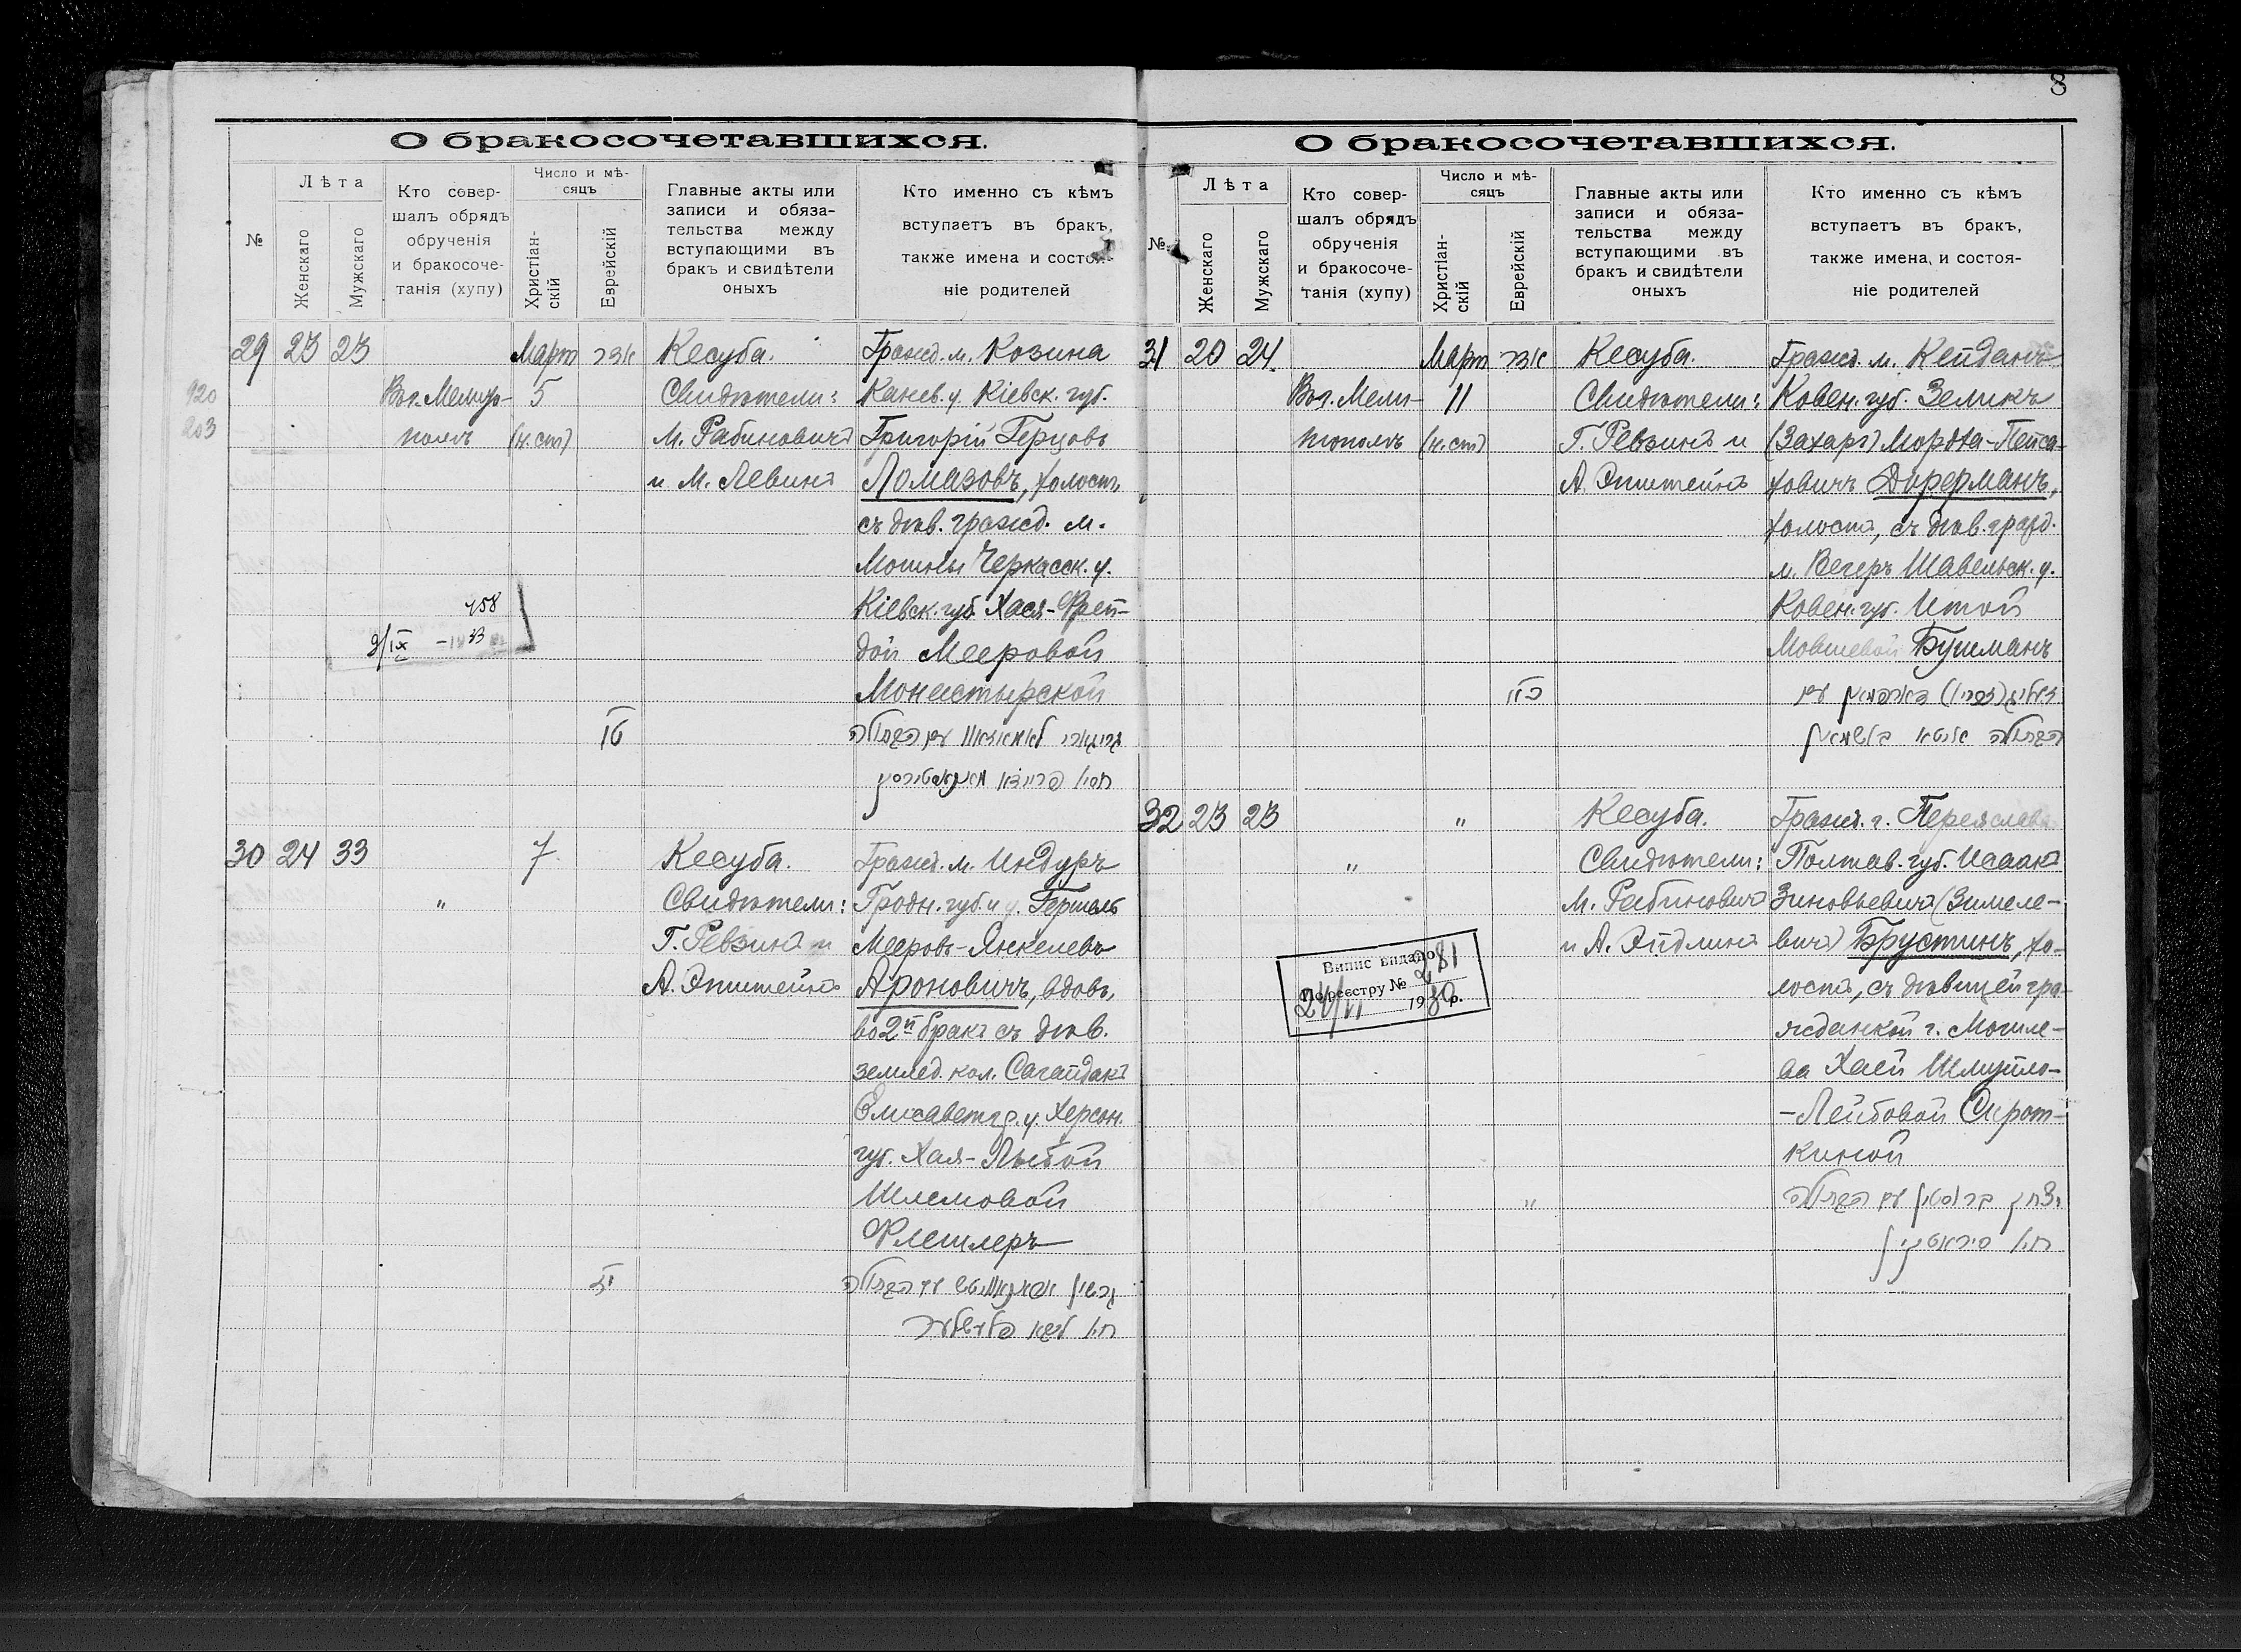 8
О бракосочетавшихся.
№
Лѣта
Женскаго
Мужскаго
Кто совер-
шалъ обрядъ
обрученія
и бракосоче-
танія (хупу)
Число и мѣ-
сяцъ
Христіан-
скій
Еврейскій
Главные акты или
записи и обяза-
тельства между
вступающими въ
бракъ и свидѣтели
оныхъ
Кто именно съ кѣмъ
вступаетъ въ бракъ,
также имена и состоя-
ніе родителей
29 23 23
Въ г. Мелито-
полѣ
Март אדר
5
(н.ст)
Кесуба.
Свидѣтели:
М. Рабиновичъ
и М. Левинъ
Гражд. м. Козина
Канев. у. Кіевск. губ.
Григорій Герцовъ
Ломазовъ, холостъ,
съ дѣв. гражд. м.
Мошны Черкасск. у.
Кіевск. губ. Хася-Фрей-
дой Мееровой
Монастырской
920
203
458
9/IX - 33
30 24 33
"
7
Кесуба.
Свидѣтели:
Г. Ревзинъ и
А. Эпштейнъ
Гражд. м. Индуръ
Гродн. губ. и у. Гершель
Мееровъ-Янкелевъ
Ароновичъ, вдовъ,
во 2й бракъ съ дѣв.
землед. кол. Сагайдакъ
Елисаветгр. у. Херсон.
губ. Хая-Львой
Шлемовой
Флешлеръ
О бракосочетавшихся.
№
Лѣта
Женскаго
Мужскаго
Кто совер-
шалъ обрядъ
обрученія
и бракосоче-
танія (хупу)
Число и мѣ-
сяцъ
Христіан-
скій
Еврейскій
Главные акты или
записи и обяза-
тельства между
вступающими въ
бракъ и свидѣтели
оныхъ
Кто именно съ кѣмъ
вступаетъ въ бракъ,
также имена, и состоя-
ніе родителей
31 20 24
Въ г. Мели-
тополѣ
Март אדר
11
(н.ст)
Кесуба.
Свидѣтели:
Г. Ревзинъ и
А. Эпштейнъ
Гражд. м. Кейданъ
Ковен. губ. Зеликъ
(Захаръ) Мордха-Пейса-
ховичъ Дирерманъ,
холостъ, съ дѣв. гражд.
м. Вегеръ Шавельск. у.
Ковен. губ. Итой
Мовшевой Бушманъ
32 23 23
"
"
"
Кесуба.
Свидѣтели:
М. Рабиновичъ
и А. Эйдлинъ
Гражд. г. Переяслава
Полтав. губ. Исаакъ
Зиновьевичъ (Зимеле-
вичъ) Брустинъ, хо-
лостъ, съ дѣвицей гра-
жданкой г. Могиле-
ва Хаей Шмуйло-
-Лейбовой Сирот-
киной
Випис видано
По реєстру № 281
24/VI 1930 р.